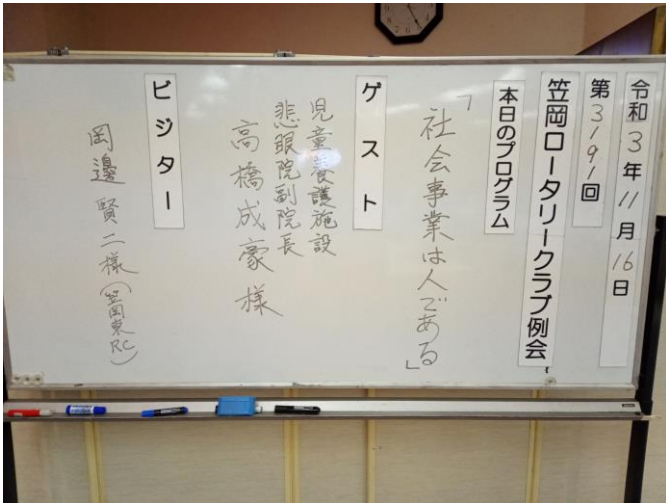 令和3年11月16日
第3191回
笠岡ロータリークラブ例会
本日のプログラム
「社会事業は人である」
ゲスト
児童養護施設
悲眼院副院長
高橋成豪様
ビジター
岡邊賢二様(笠岡東RC)